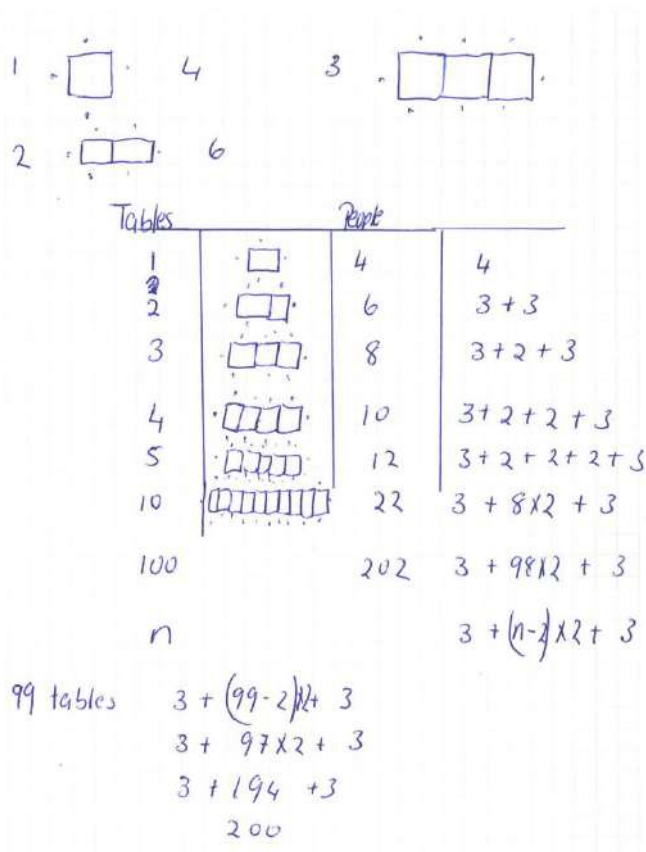 1 4 3
2 6
Tables People
1 4 4
2 6 3 + 3
3 8 3 + 2 + 3
4 10 3 + 2 + 2 + 3
5 12 3 + 2 + 2 + 2 + 3
10 22 3 + 8 x 2 + 3
100 202 3 + 98 x 2 + 3
n 3 + (n-2) x 2 + 3
99 tables 3 + (99-2) x 2 + 3
3 + 97 x 2 + 3
3 + 194 + 3
200